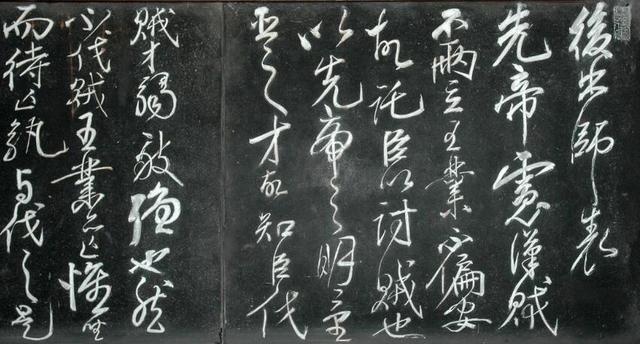 後出師表
先帝慮漢賊
不兩立王業不偏安
故託臣以討賊也
以先帝之明量
臣之才故知臣伐
賊才弱敵強也然
不伐賊王業亦亡惟坐
而待亡孰与伐之是